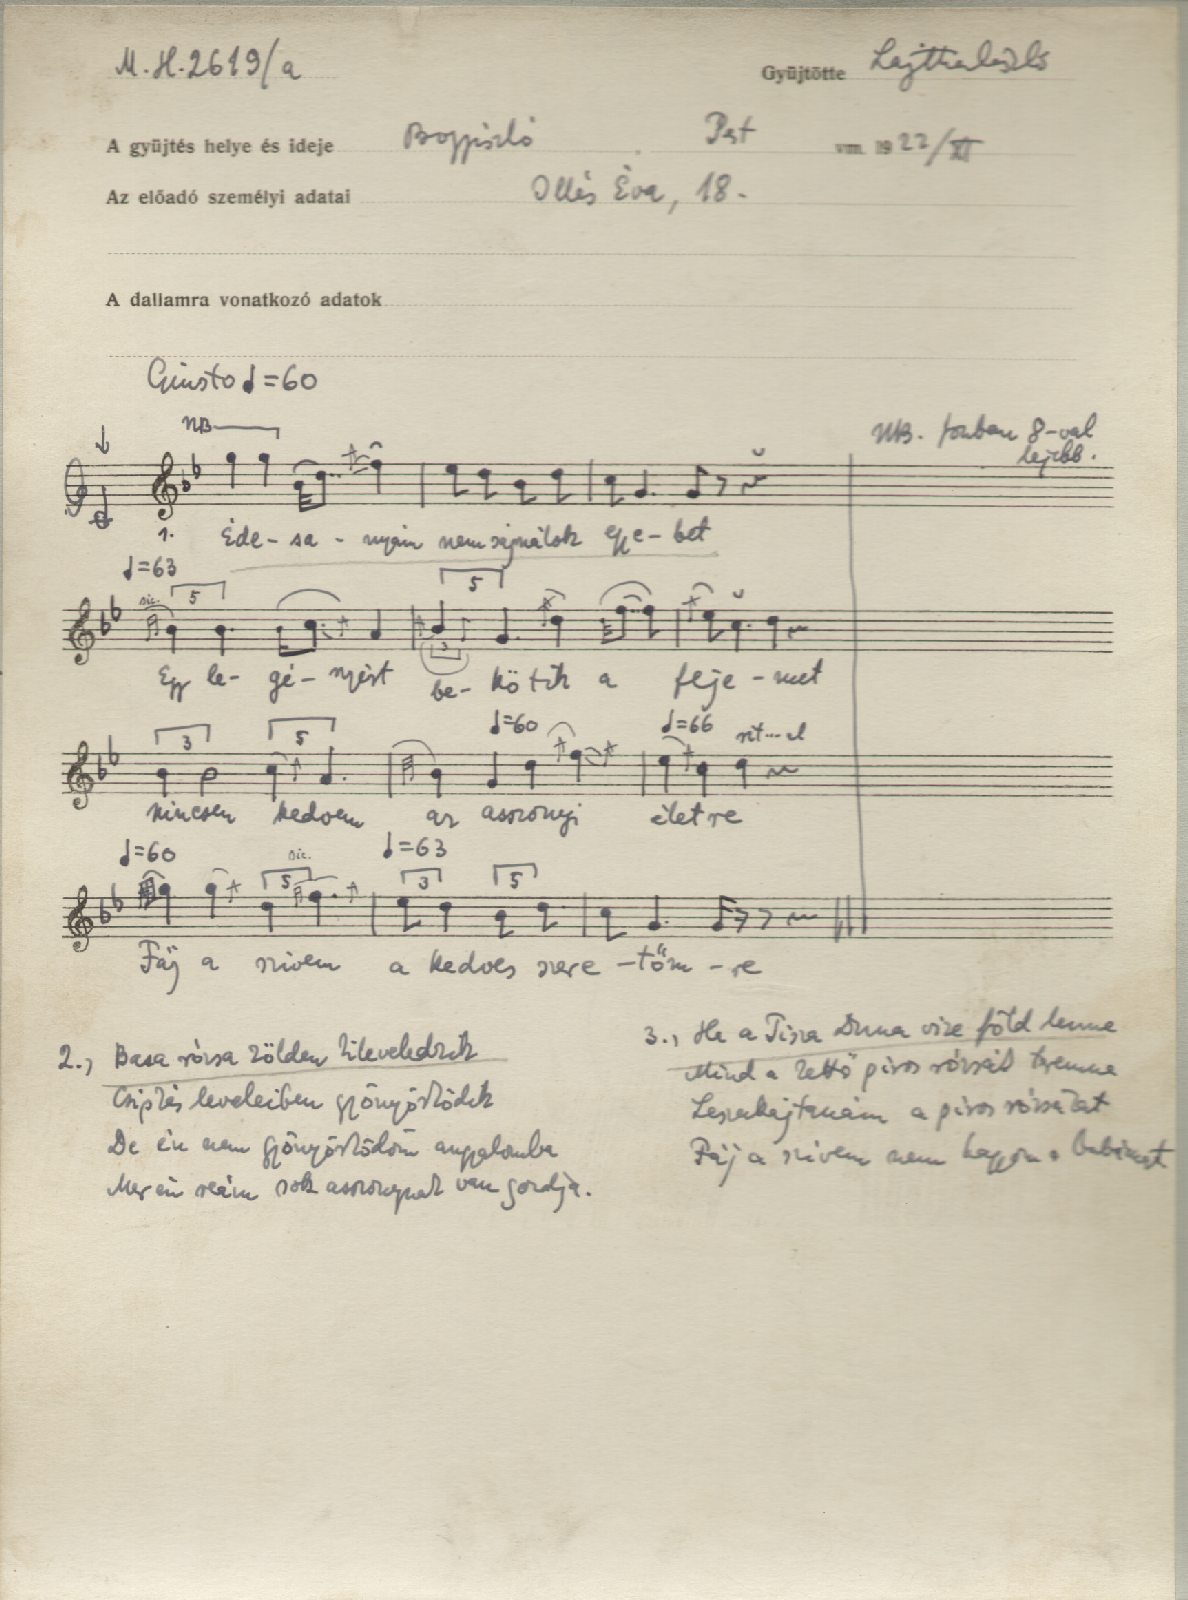 M.H.2619/a
Gyüjtötte Lajtha László
A gyüjtés helye és ideje Bogyiszló Pest vm. 1922/XI
Az előadó személyi adatai Illés Éva, 18.
A dallamra vonatkozó adatok
Giusto ♩=60
NB
NB. fonban 8-val
lejebb.
1. Édes-a-nyám nem sajnálok egye-bet
♩=63
sic. 5 5
3
Egy le-gé-nyért be-kötik a feje-met
3 5 ♩=60 ♩=66
nincsen kedvem az asszonyi életre
♩=60 sic. ♩=63
5 3 5
Fáj a szivem a kedves szere-tőm-re
2., Basa rózsa zölden kileveledzik
Csipkés leveleiben gyönyörködik
De én nem gyönyörködöm
Mer én reám sok asszonynak van gondja.
3., Ha a Tisza Duna vize föld lenne
Mind a kettő piros rózsát teremne
Leszakajtanám a piros rózsákat
Fáj a szivem nem hagyom a babámat